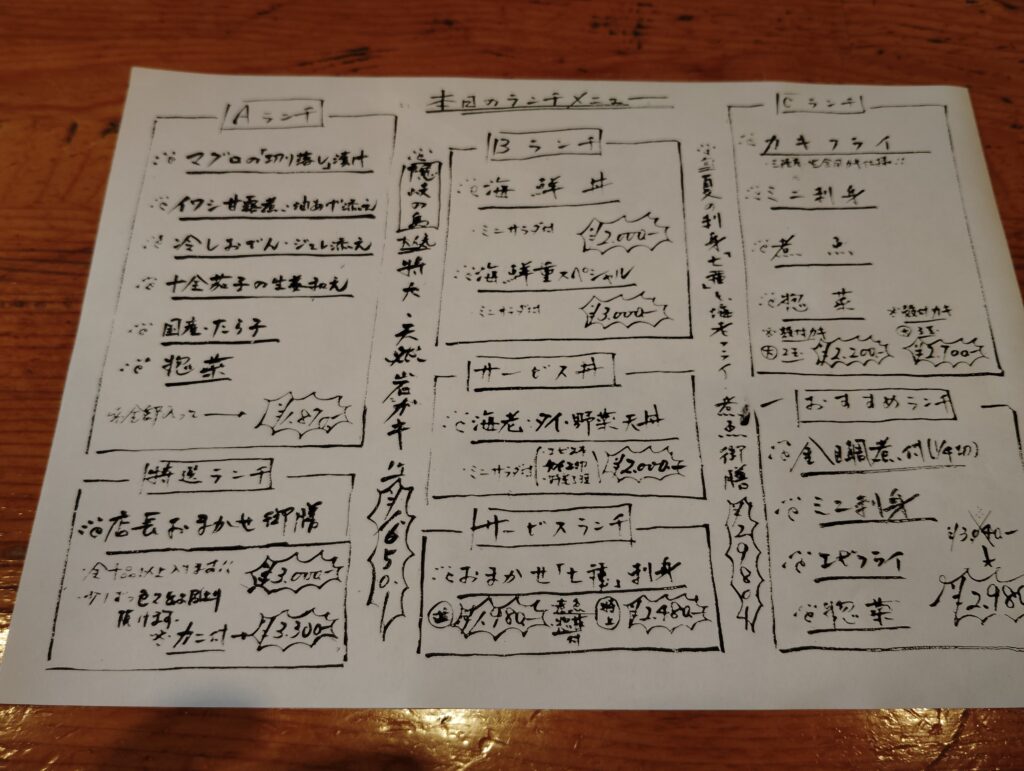 本日のランチメニュー
Aランチ
マグロの「切り落し」漬け
イワシ甘露煮・梅あげ添え
冷しおでん・ジュレ添え
十全茄子の生姜和え
国産・たら子
惣菜
全部入って→ ¥1.870-
特選ランチ
店長おまかせ御膳
全十品以上入てます!! ¥3.000-
頂けます。
カニ付→ ¥3.300-
隠岐の島
特大・天然岩ガキ
¥1650.-
Bランチ
海鮮丼
・ミニサラダ付 ¥2.000-
海鮮重スペシャル
ミニサラダ付 ¥3.000-
サービス丼
海老・タイ・野菜天丼
・ミニサラダ付 ¥2.000-
サービスランチ
おまかせ「七種」刺身
¥1.980- 特上 ¥2.480-
夏の刺身「七種」と海老フライ 煮魚御膳 ¥2980-
Cランチ
カキフライ
ミニ刺身
煮魚
惣菜
殻付カキ 殻付カキ
大2玉 ¥2.200- 大3玉 ¥2.700-
おすすめランチ
金目鯛煮付(1/4切)
ミニ刺身
エビフライ
惣菜
¥3.040-
¥2.980-